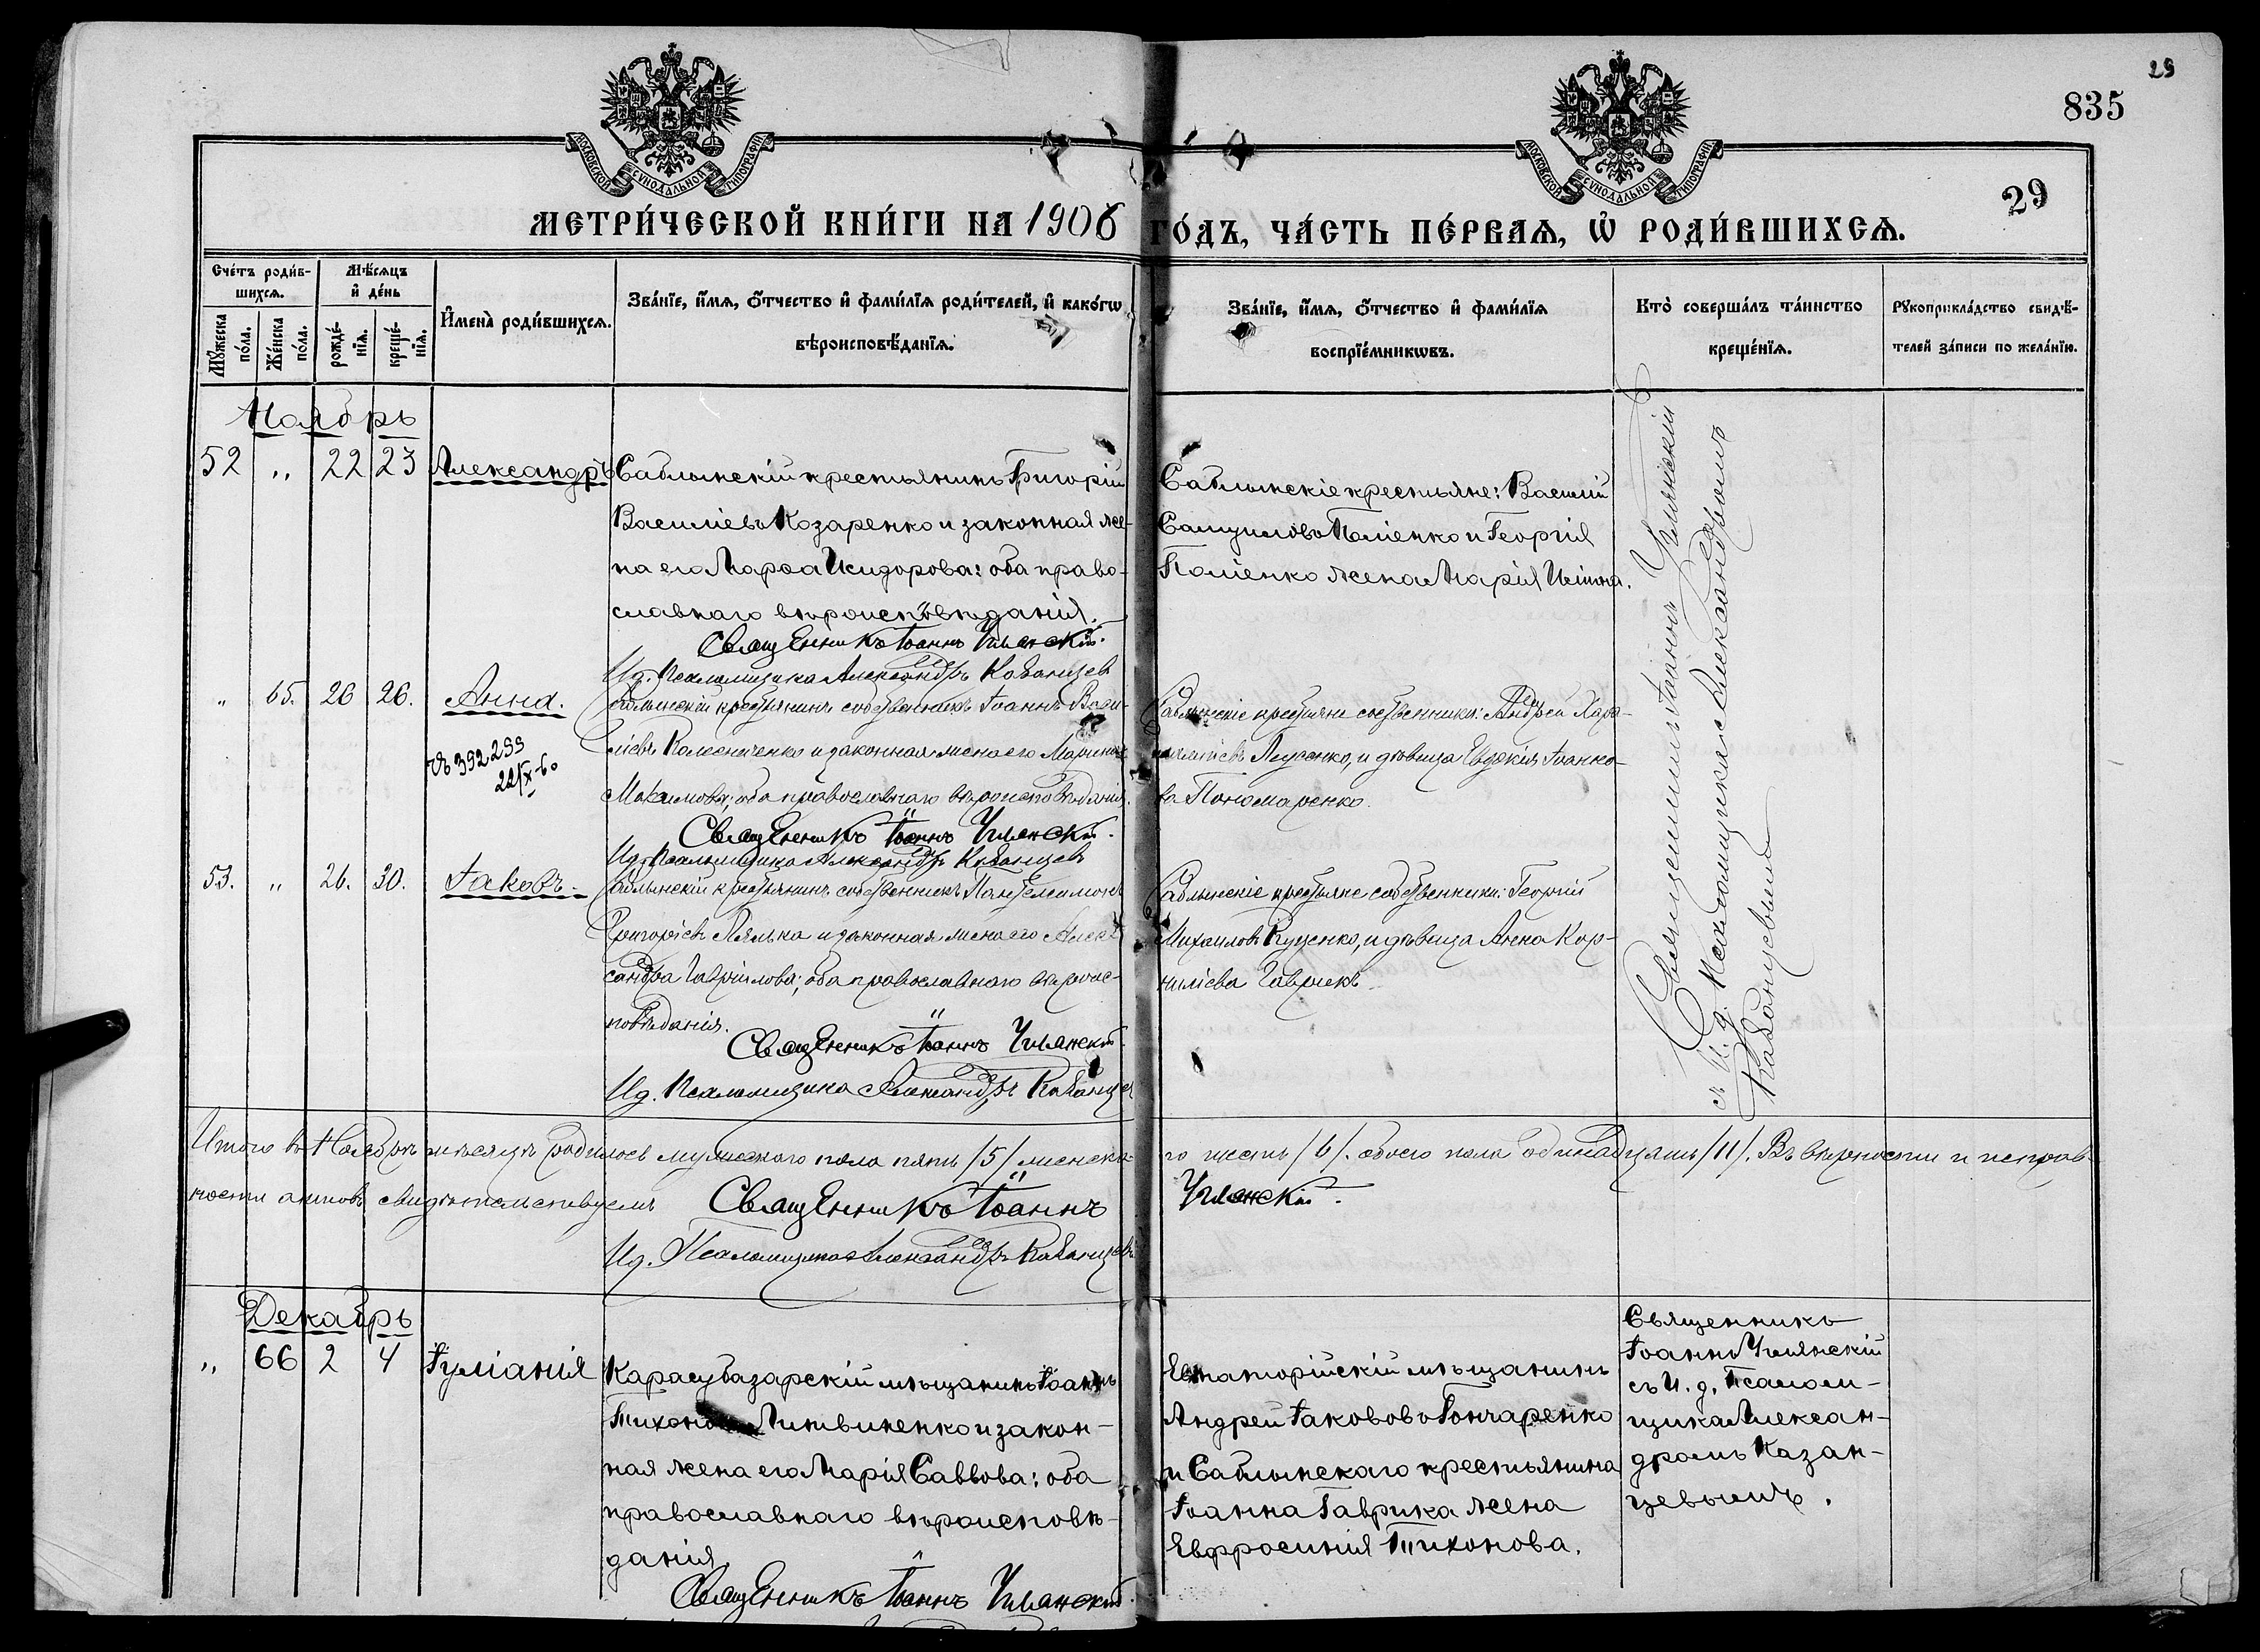 29
835
29
МОСКОВСКОЙ СУНОДАЛЬНОЙ ТИПОГРАФІИ
МОСКОВСКОЙ СУНОДАЛЬНОЙ ТИПОГРАФІИ
МЕТРИ́ЧЕСКОЙ КНИ́ГИ НА 1906 ГО́ДЪ, ЧА́СТЬ ПЕ́РВАѦ, Ѡ҆ РОДИ́ВШИХСѦ.
Сче́тъ роди́в-
шихсѧ.
Мꙋ́жеска по́ла.
Же́нска по́ла.
Мѣ́сѧцъ
и҆ де́нь
рожде́-
нїѧ.
креще́-
нїѧ.
И҆мена̀ роди́вшихсѧ.
Зва́нїе, и҆́мѧ, ѻ҆́тчество и҆ фами́лїѧ роди́телей, и҆ како́гѡ
вѣроисповѣ́данїѧ.
Зва́нїе, и҆́мѧ, ѻ҆́тчество и҆ фами́лїѧ
воспрїе́мникѡвъ.
Кто̀ соверша́лъ та́инство
креще́нїѧ.
Рꙋкоприкла́дство свидѣ́-
телей за́писи по жела́нїю.
Ноябрь
52 „ 22 23 Александръ
Саблынскій крестьянинъ Григорій
Василіевъ Козаренко и законная же-
на его Марѳа Исидорова: оба право-
славнаго вѣроисповѣданія.
Священникъ Іоаннъ Чилянскій.
Ид. Псаломщика Александръ Казанцев
Саблынскіе крестьяне: Василій
Самуиловъ Поліенко и Георгія
Поліенко жена Марія Иліина.
Священникъ Іоаннъ Чилянскій
съ И. д. Псаломщика Александромъ
Казанцевымъ
„ 65. 26 26. Анна.
392299
22/IX-60
Саблынскій крестьянинъ собственникъ Іоаннъ Васи-
ліевъ Колесниченко и законная жена его Марина
Максимова; оба православнаго вѣроисповѣданія.
Священникъ Іоаннъ Чилянскій.
Ид. Псаломщика Александръ Казанцевъ
Саблынскіе крестьяне собственники: Андрей Хара-
лампіевъ Лусенко, и дѣвица Евдокія Іоанно-
ва Пономаренко.
53. „ 26. 30. Іаковъ.
Саблынскій крестьянинъ собственникъ Пантелеимонъ
Григоріевъ Лялька и законная жена его Алек-
сандра Гавріилова; оба православнаго вѣроис-
повѣданія.
Священникъ Іоаннъ Чилянскій
Ид. Псаломщика Александръ Казанцев
Саблынскіе крестьяне собственники: Георгій
Михаиловъ Куценко, и дѣвица Анна Кор-
нилісва Гаврикъ
Итого въ Ноябрѣ мѣсяцѣ родилось мужескаго пола пять /5/ женска-го шесть /6/. обоего пола одинадцать /11/. Въ вѣрности и исправ-
ности актовъ свидѣтельствуемъ Священникъ Іоаннъ Чилянскій.
Ид. Псаломщика Александръ Казанцевъ
Декабрь
„ 66 2 4 Іуліанія
Карасубазарскій мѣщанинъ Іоаннъ
Тихоновъ Литвиненко и закон-
ная жена его Марія Саввова: оба
православнаго вѣроисповѣ-
данія.
Священникъ Іоаннъ Чилянскій
Евпаторійскій мѣщанинъ
Андрей Іаковъ Гончаренко
и Саблынскаго крестьянина
Іоанна Гаврика жена
Евфросинія Тихонова.
Священникъ
Іоаннъ Чилянскій
съ И. д. Псалом-
щика Алексан-
дромъ Казан-
цевымъ.